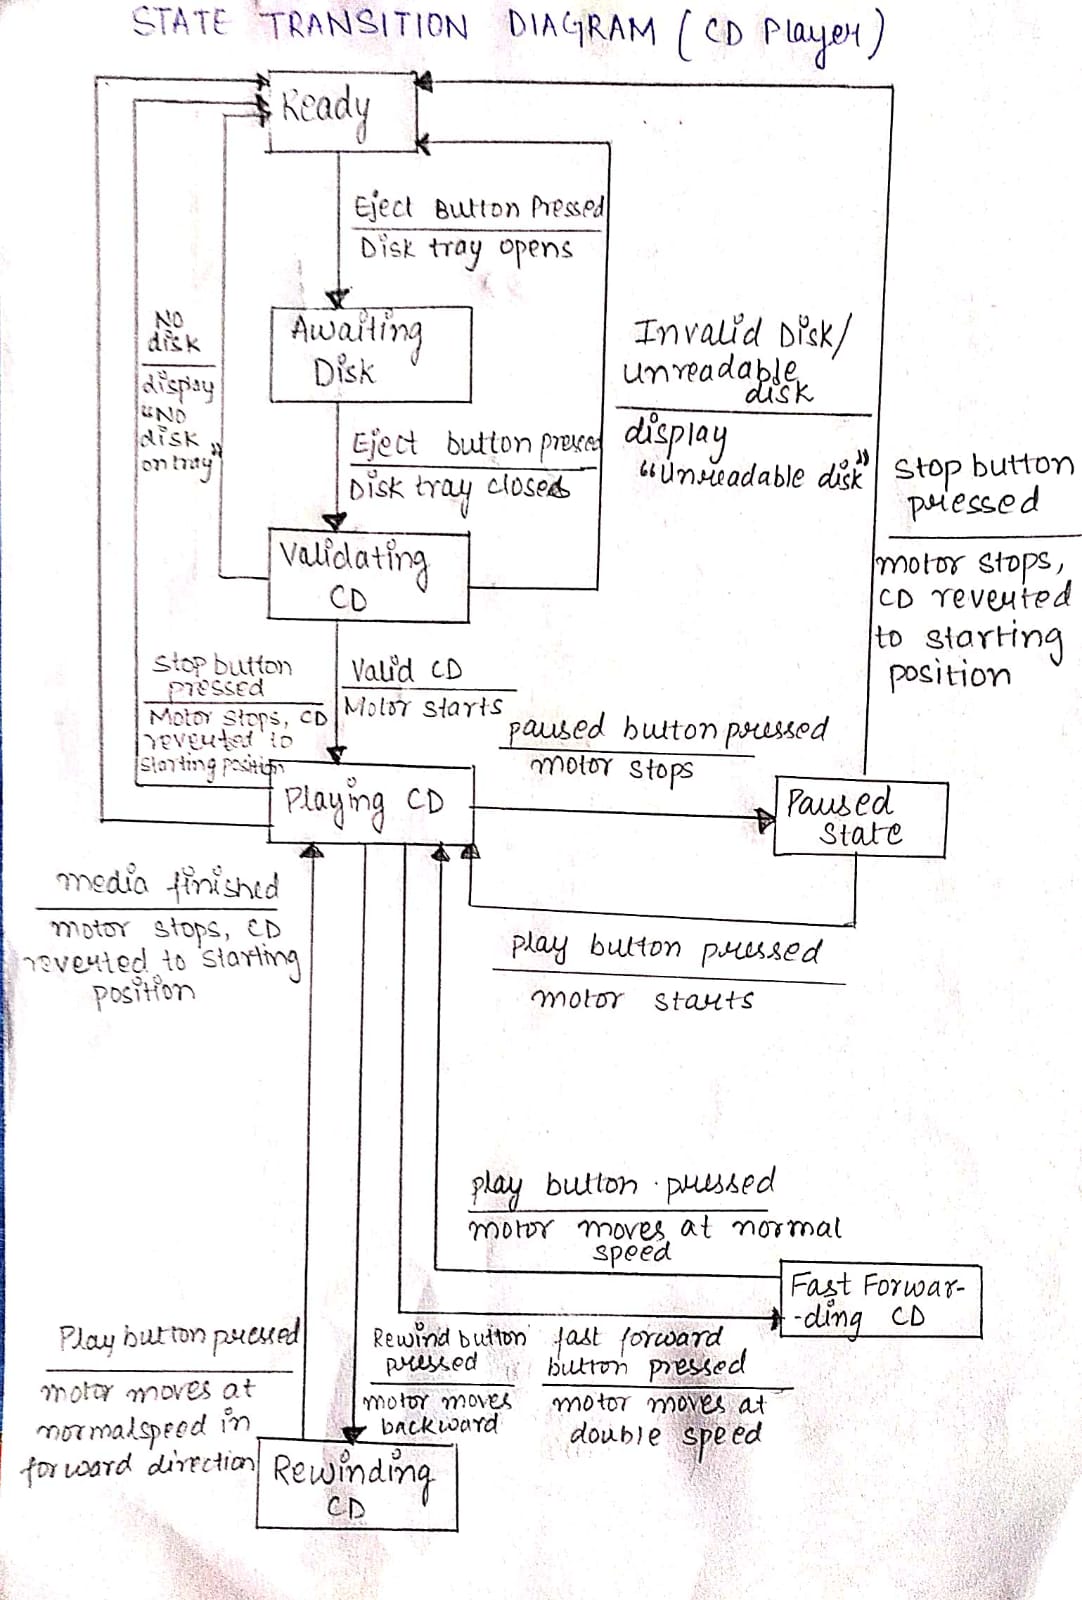 STATE TRANSITION DIAGRAM (CD Player)
Ready
Eject Button Pressed
Disk tray opens
Awaiting
Disk
NO
disk
display
"NO
disk
on tray"
Invalid Disk/
unreadable
disk
display
"Unreadable disk"
Eject button pressed
Disk tray closes
Stop button
pressed
motor stops,
CD reverted
to starting
position
Validating
CD
Stop button
pressed
Motor stops, CD
reverted to
starting position
Valid CD
Motor starts
paused button pressed
motor stops
Playing CD
Paused
State
media finished
motor stops, CD
reverted to starting
position
play button pressed
motor starts
play button pressed
motor moves at normal
speed
Fast Forwar-
-ding CD
Play button pressed
motor moves at
normal speed in
forward direction
Rewind button
pressed
motor moves
backward
fast forward
button pressed
motor moves at
double speed
Rewinding
CD